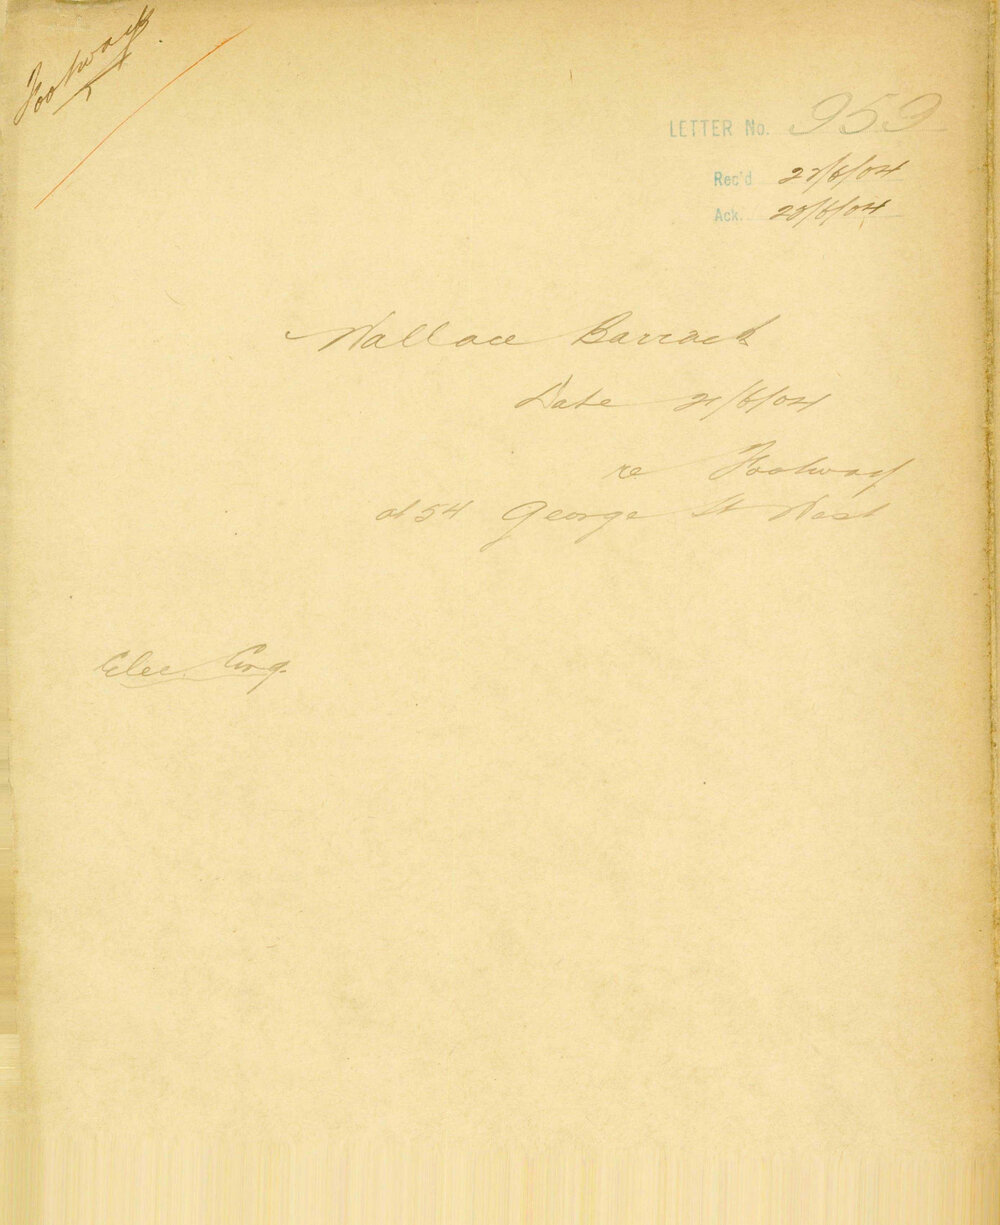 Footway.
LETTER No. 959
Rec'd 22/6/04
Ack. 28/6/04
Wallace Barrack
Date 21/6/04
re Footway
at 54 George St West
Elec. Eng.